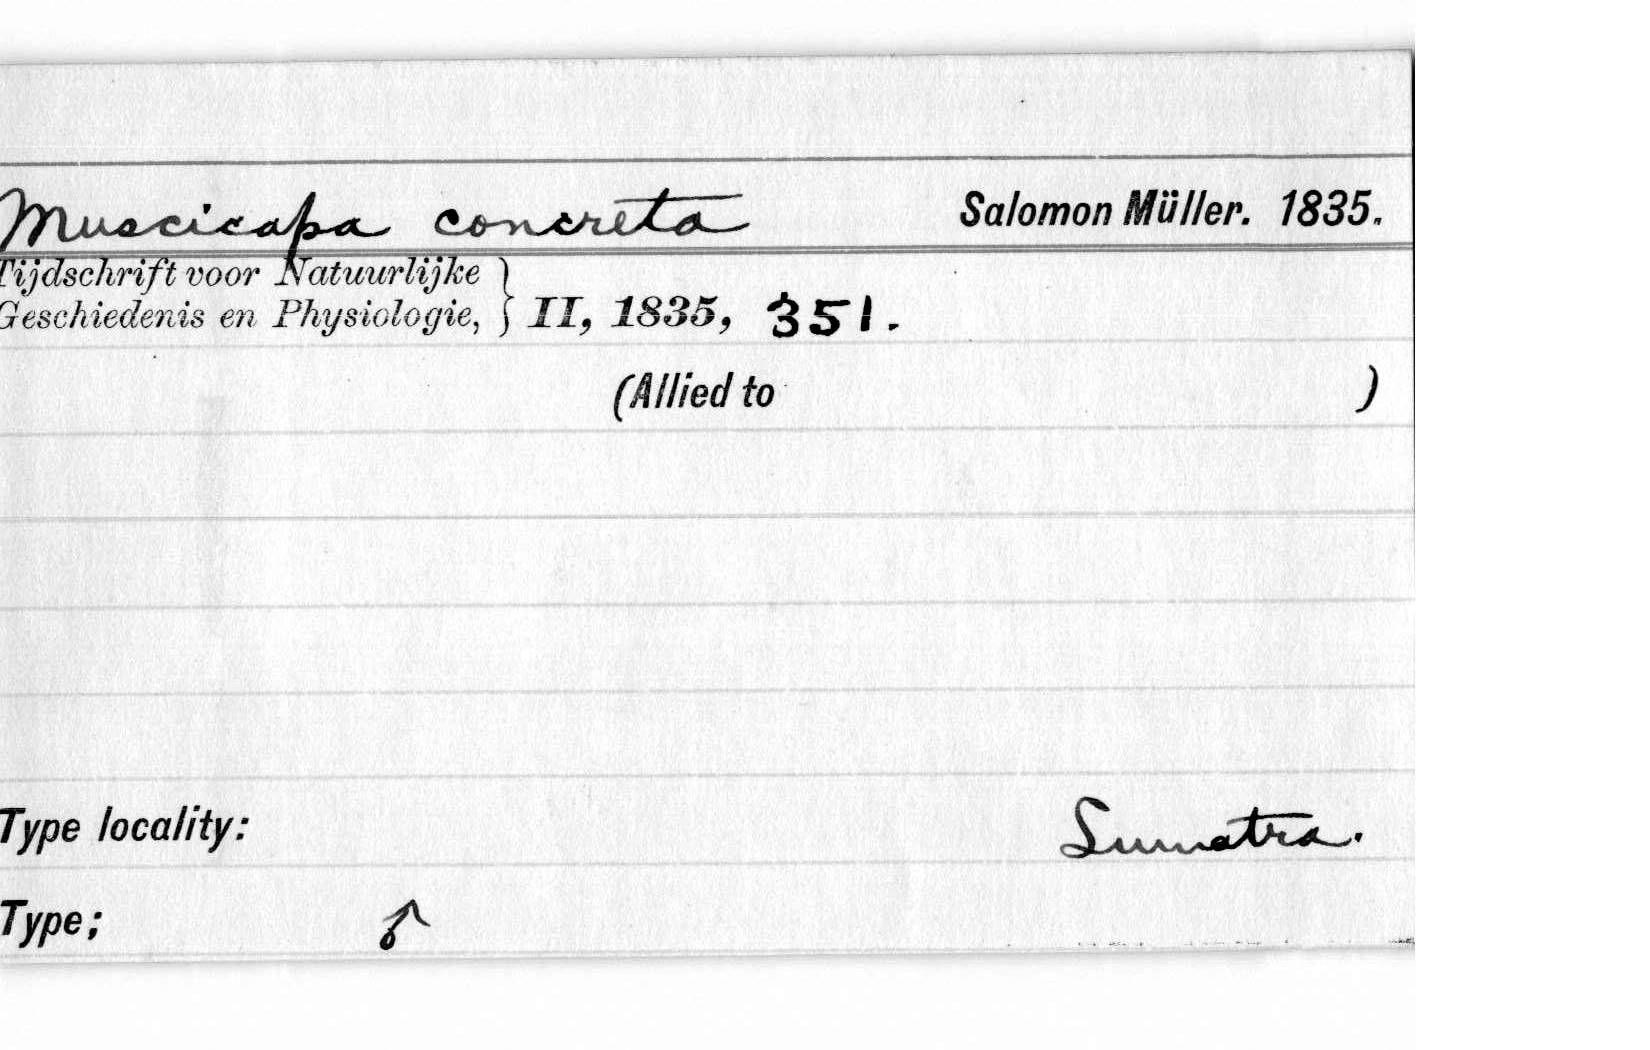 Muscicapa concreta Salomon Müller. 1835.
Tijdschrift voor Natuurlijke
Geschiedenis en Physiologie, } II, 1835, 351.
(Allied to )
Type locality: Sumatra.
Type; ♂